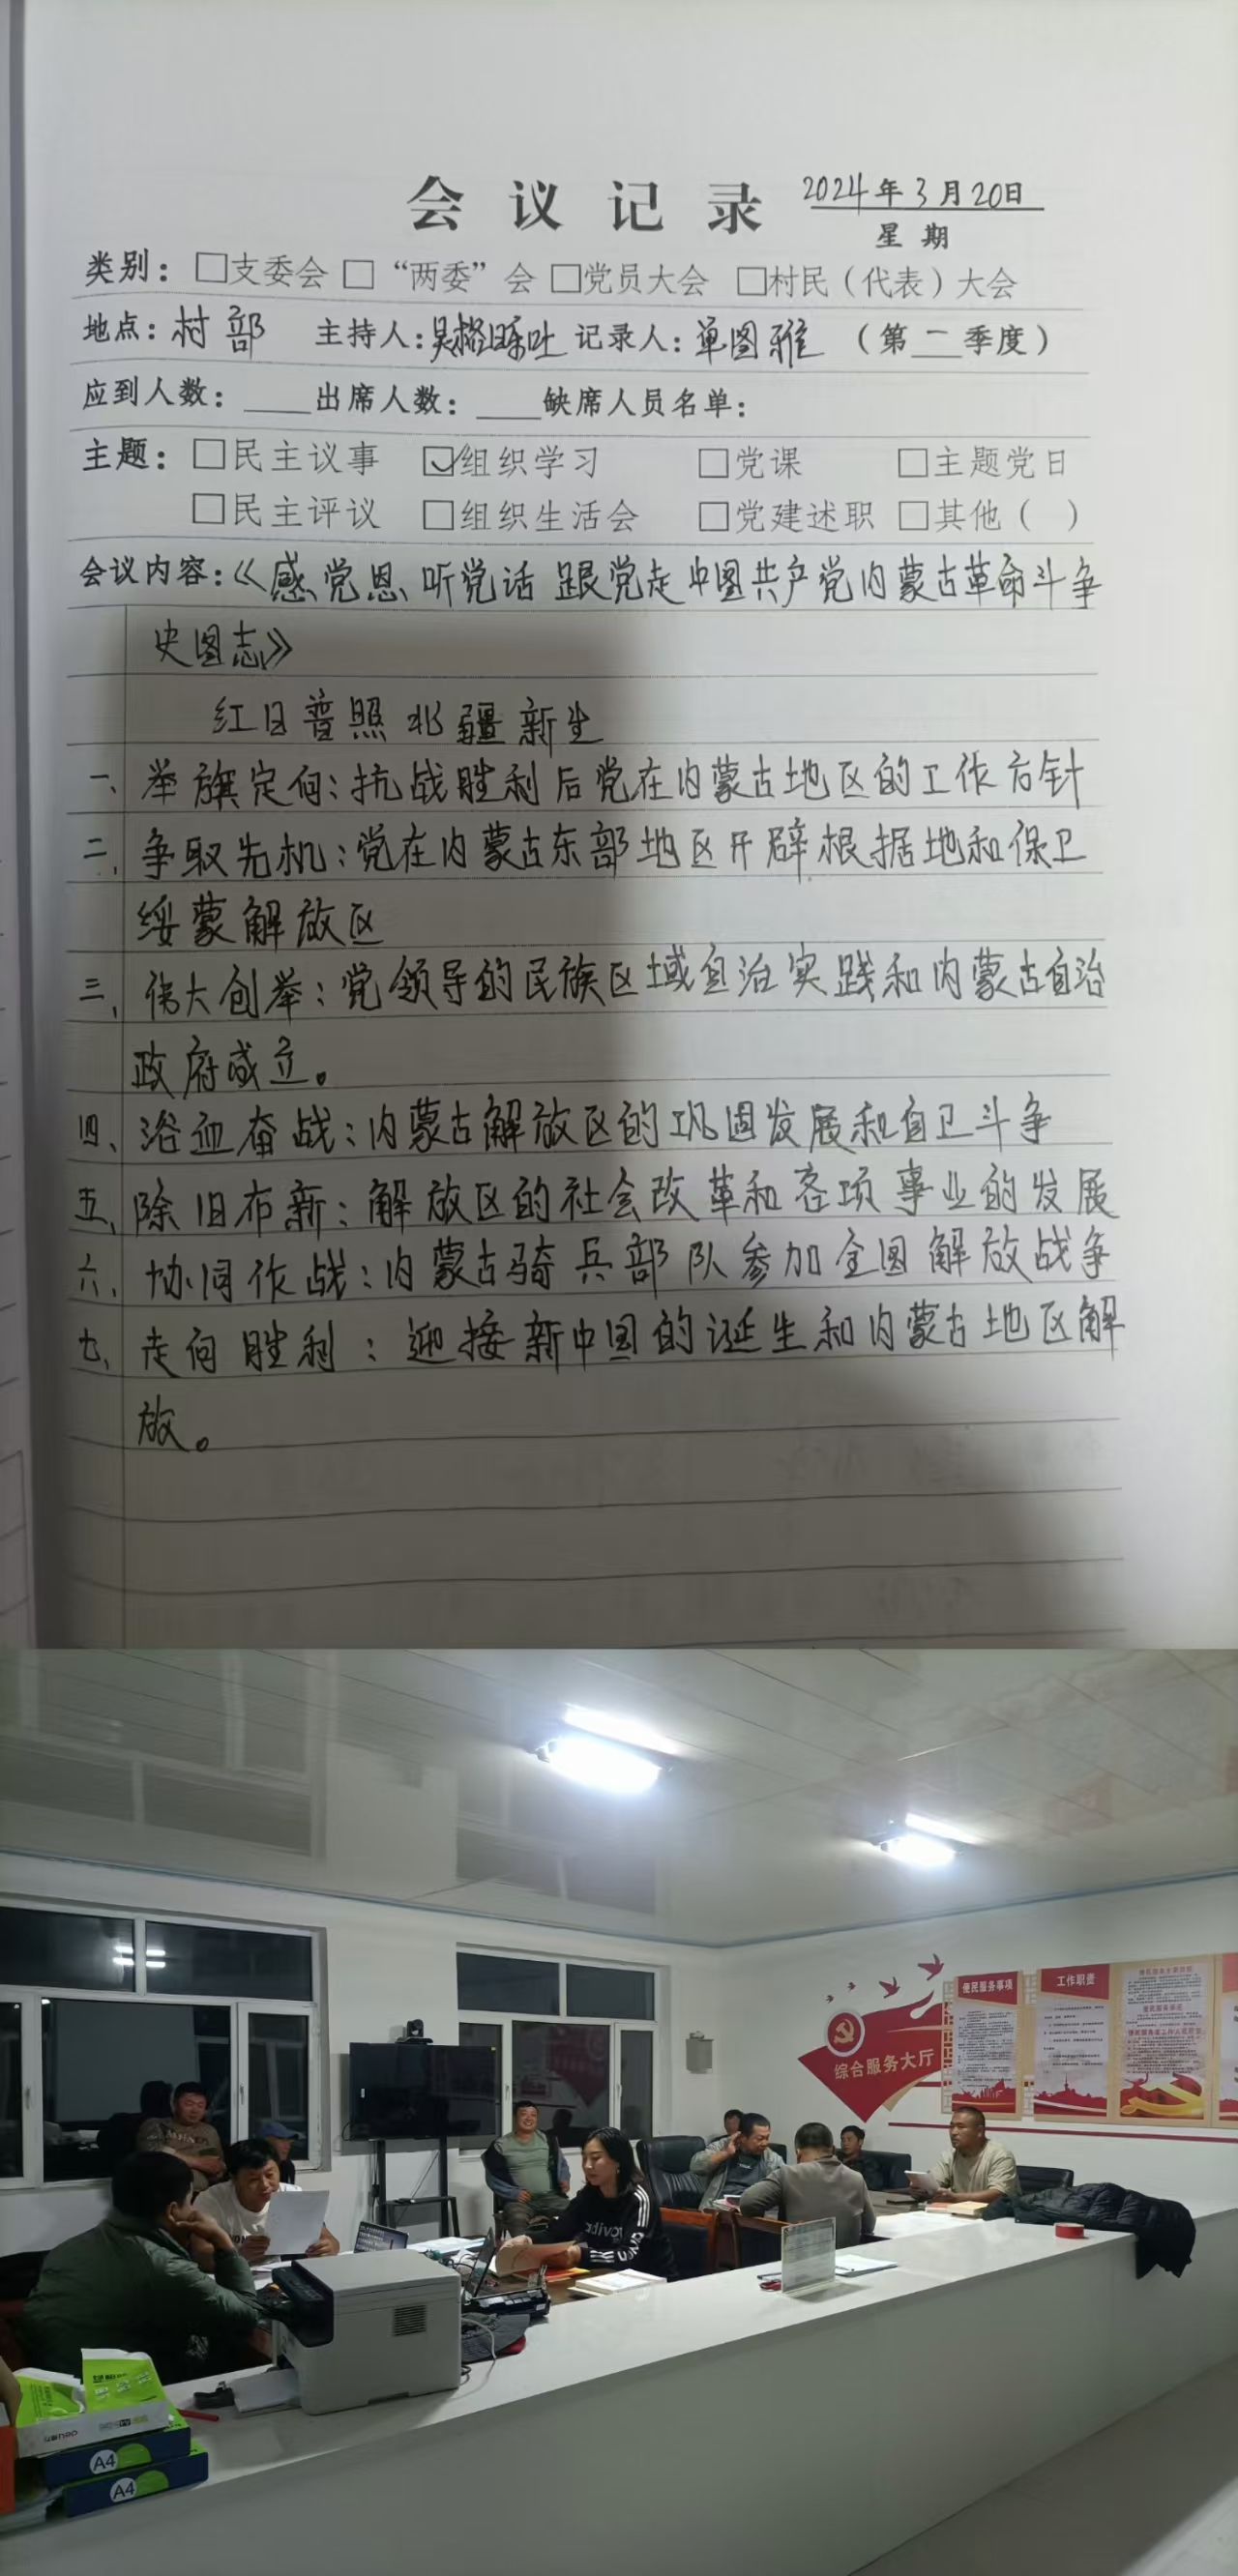 会议记录 2024年3月20日
星期
类别：□支委会 □“两委”会 □党员大会 □村民（代表）大会
地点：村部 主持人：吴格日乐吐 记录人：单图雅 （第__季度）
应到人数：____出席人数：____缺席人员名单：
主题：□民主议事 ☑组织学习 □党课 □主题党日
□民主评议 □组织生活会 □党建述职 □其他（ ）
会议内容：《感党恩 听党话 跟党走 中国共产党内蒙古革命斗争
史图志》
红日普照 北疆新生
一、举旗定向：抗战胜利后党在内蒙古地区的工作方针
二、争取先机：党在内蒙古东部地区开辟根据地和保卫
绥蒙解放区
三、伟大创举：党领导的民族区域自治实践和内蒙古自治
政府成立。
四、浴血奋战：内蒙古解放区的巩固发展和自卫斗争
五、除旧布新：解放区的社会改革和各项事业的发展
六、协同作战：内蒙古骑兵部队参加全国解放战争
七、走向胜利：迎接新中国的诞生和内蒙古地区解
放。
综合服务大厅
便民服务事项
工作职责
A4
A4